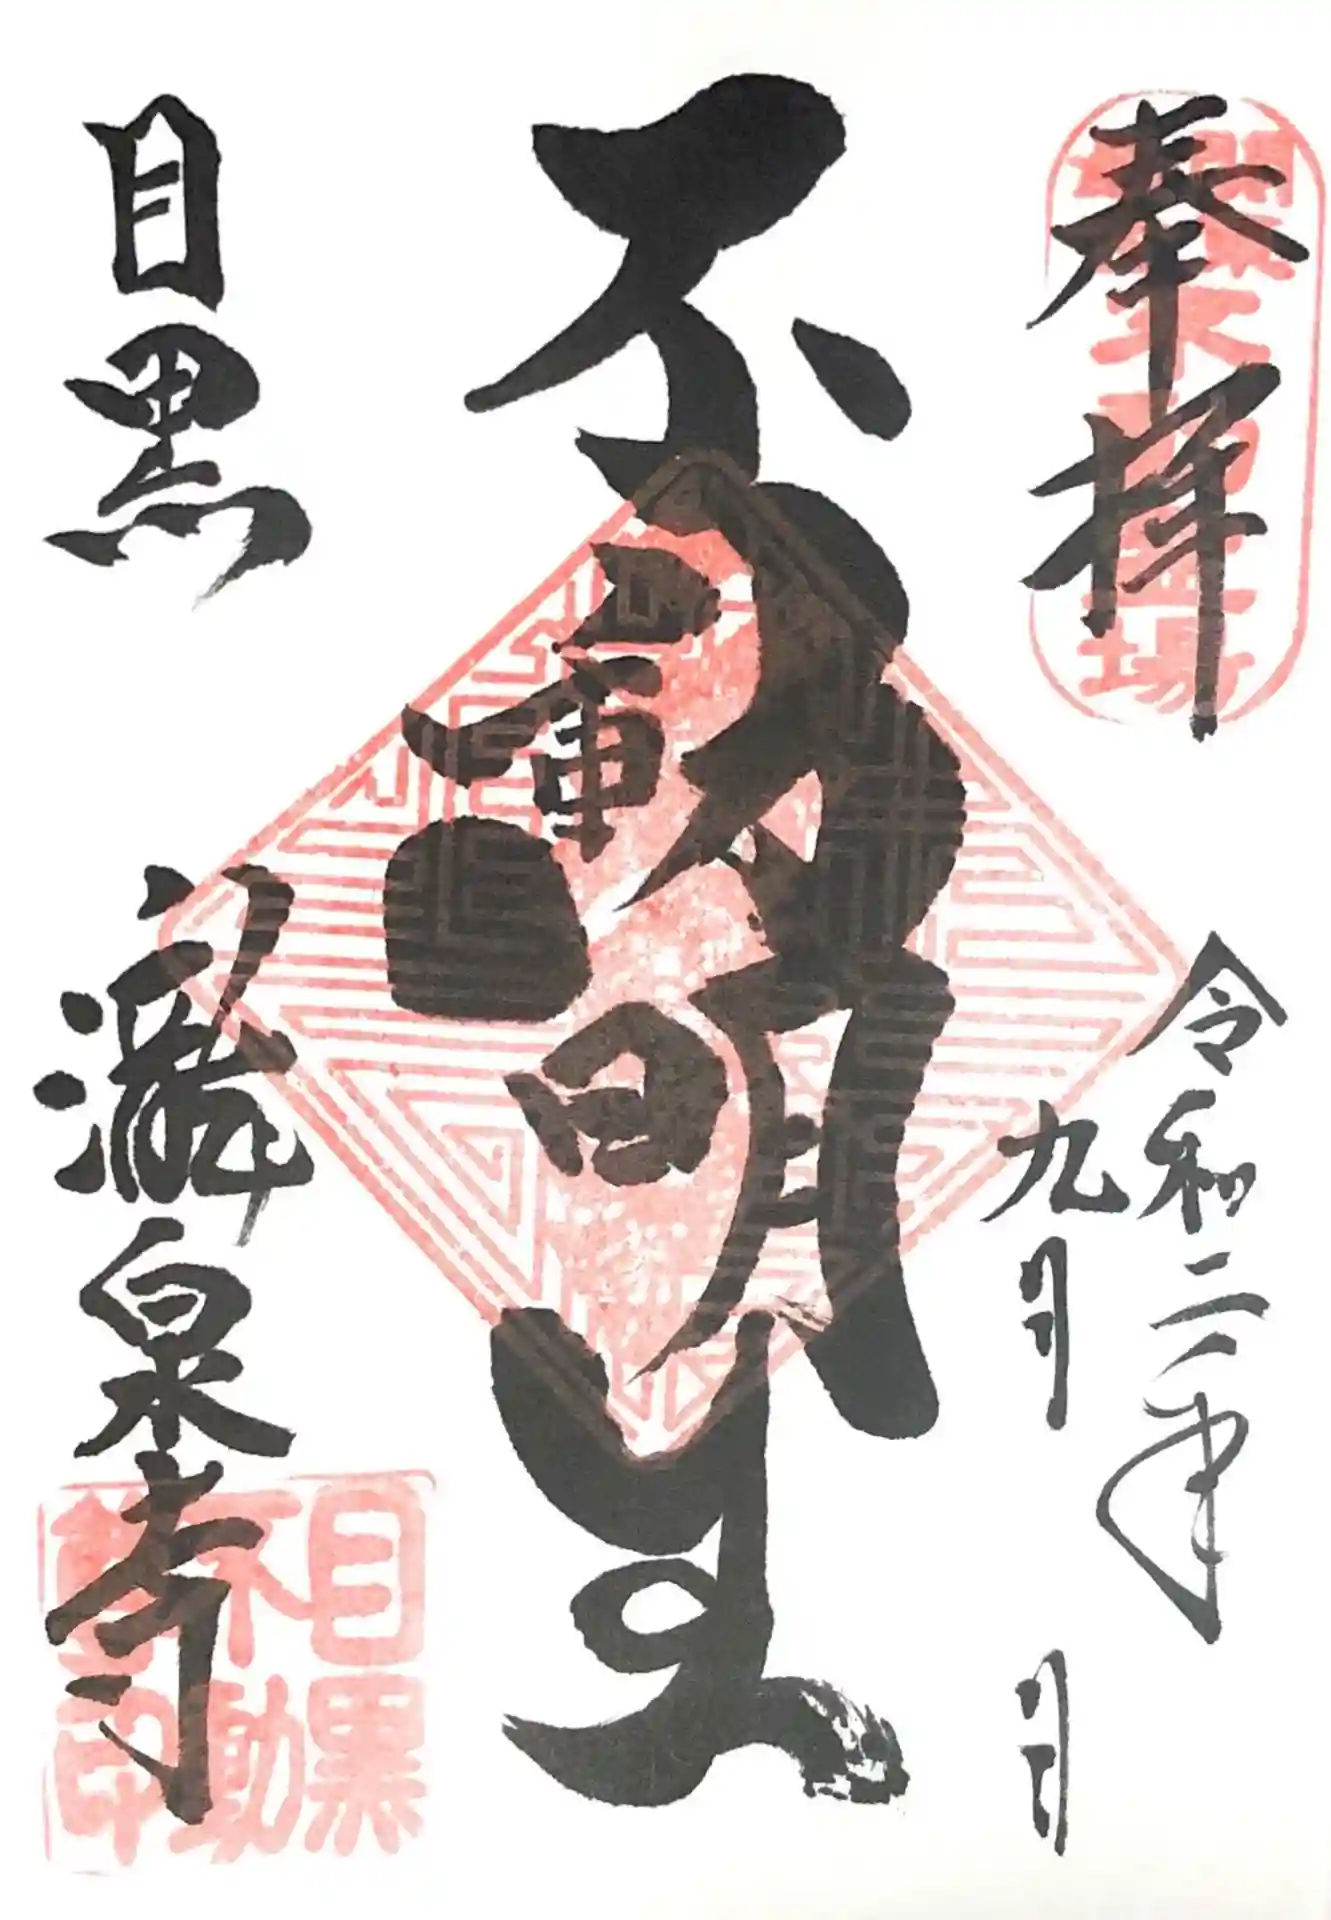 奉拝
令和二年
九月
月
不動明王
目黒
瀧泉寺
目黒
不動